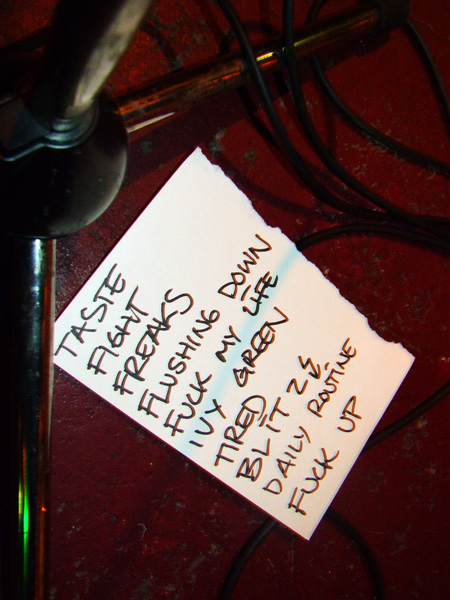 TASTE
FIGHT
FREAKS
FLUSHING DOWN
FUCK MY LIFE
IVY GREEN
TIRED
BLIT
DAILY ROUTINE
FUCK UP